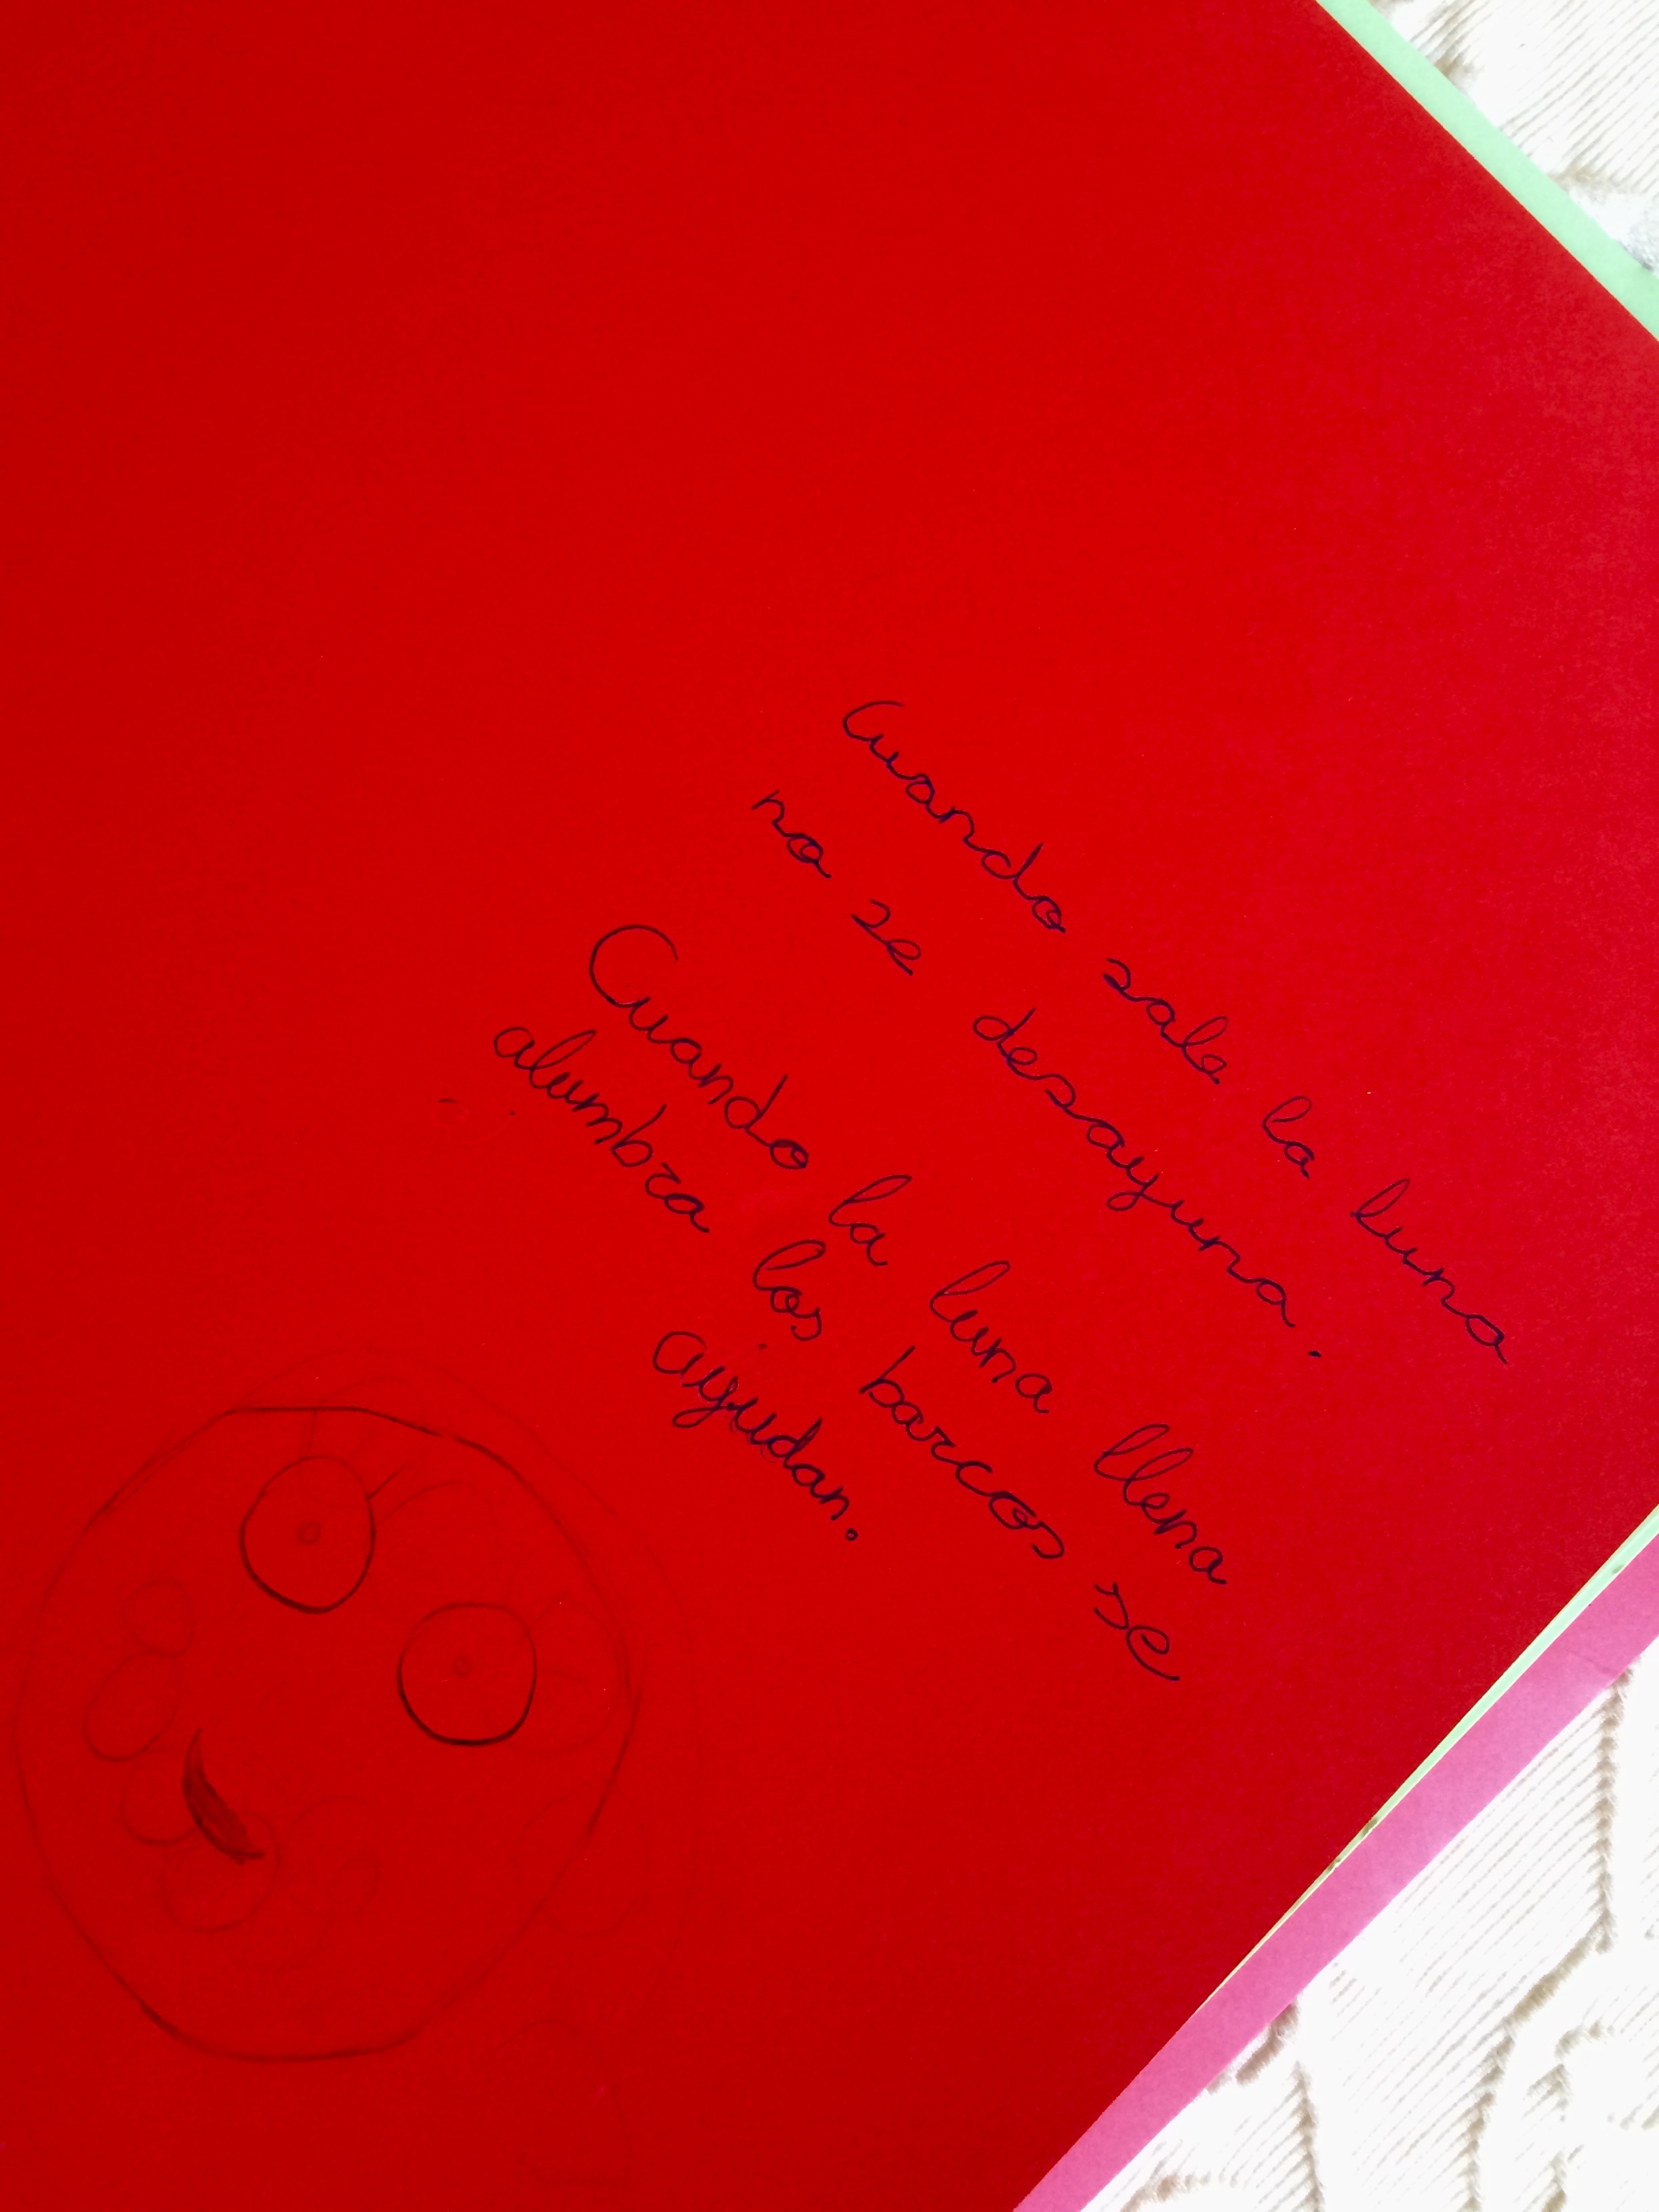 Cuando sale la luna
no se desayuna.
Cuando la luna llena
alumbra los barcos se
ayudan.